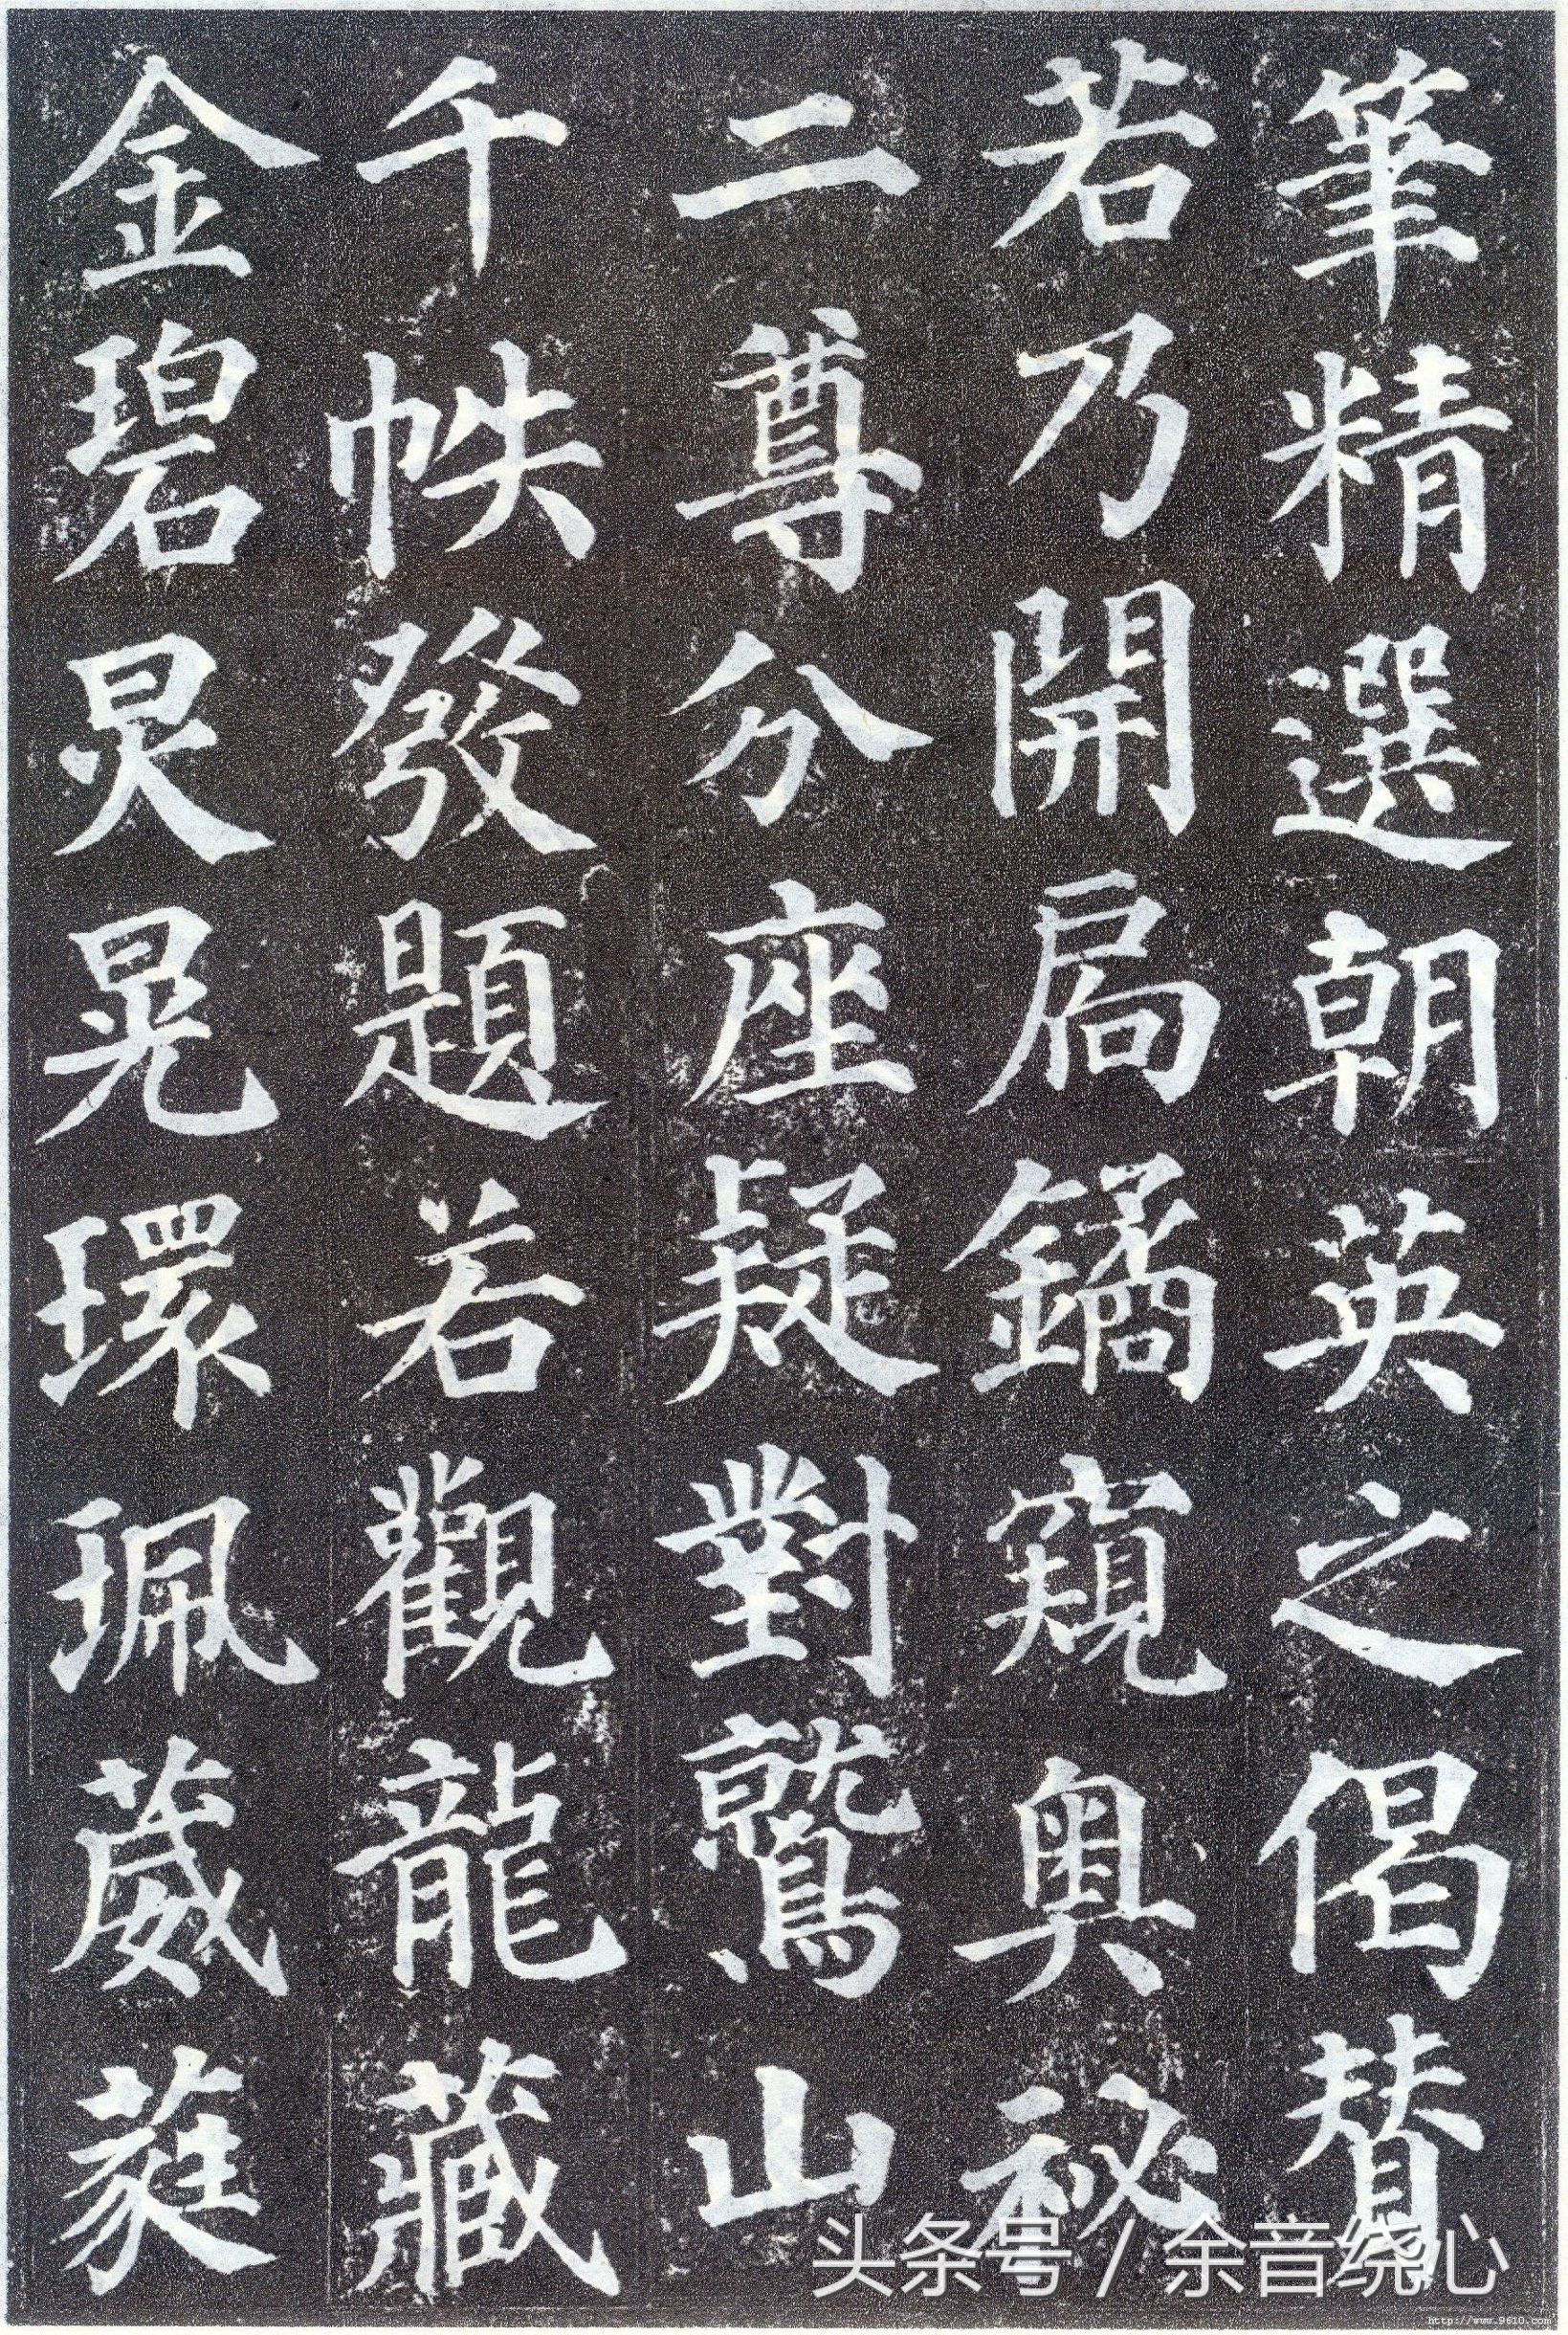 筆精選朝英之偈贊
若乃開扃鐍窺奧祕
二尊分座疑對鷲山
千帙發題若觀龍藏
金碧炅晃環珮葳蕤
头条号 / 余音绕心
http://www.9610.com